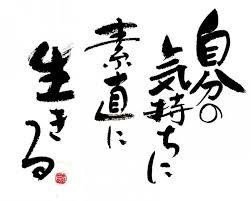 自分の
気持ちに
素直に
生きる